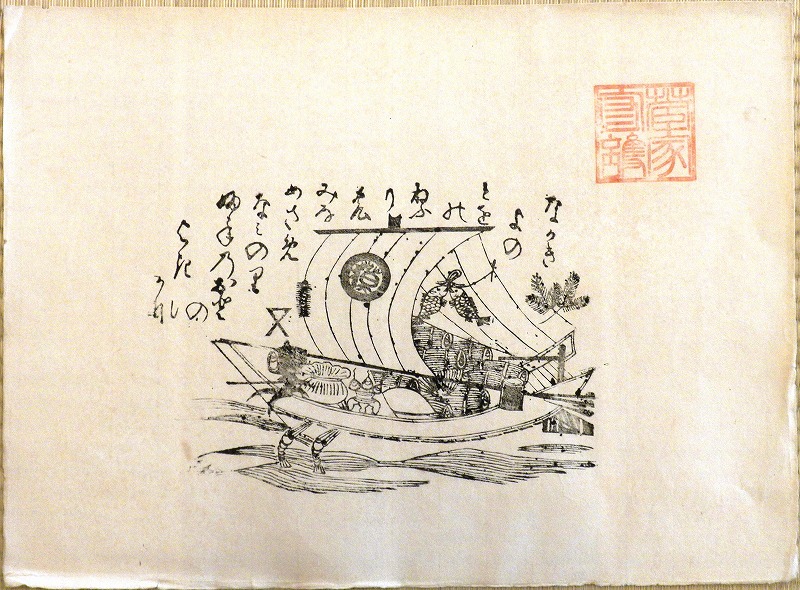 なかき
よの
とを
の
ねふ
り
の
みな
めさめ
なみのり
ふねのおと
の
よき
かな
菅家